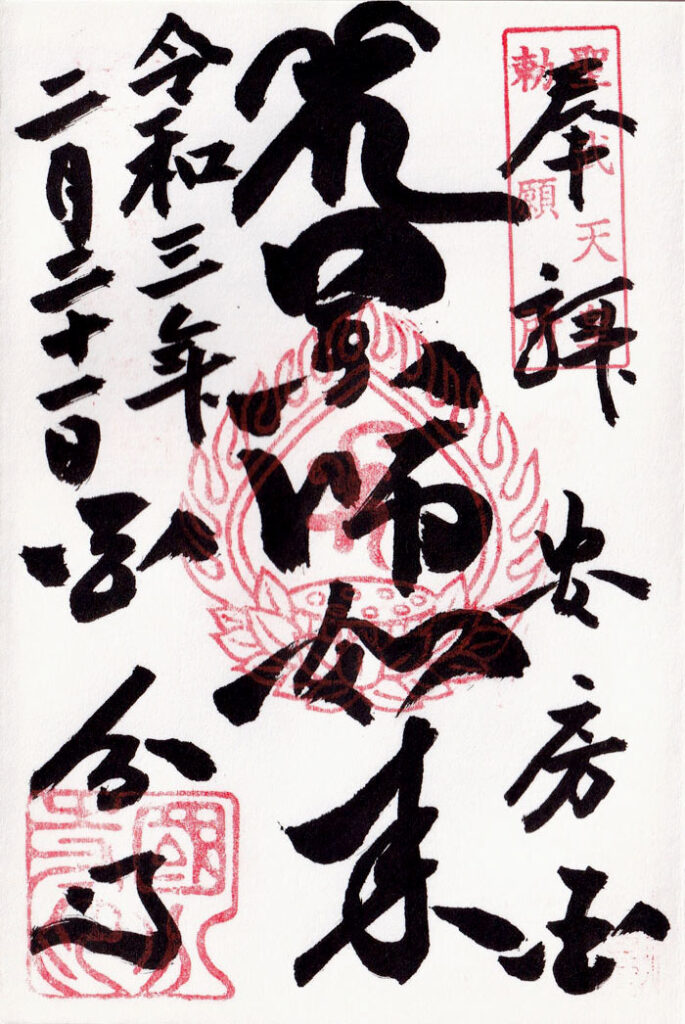 聖武天皇
勅願所
奉拝
安房国
薬師如来
令和三年
二月二十一日
国分寺